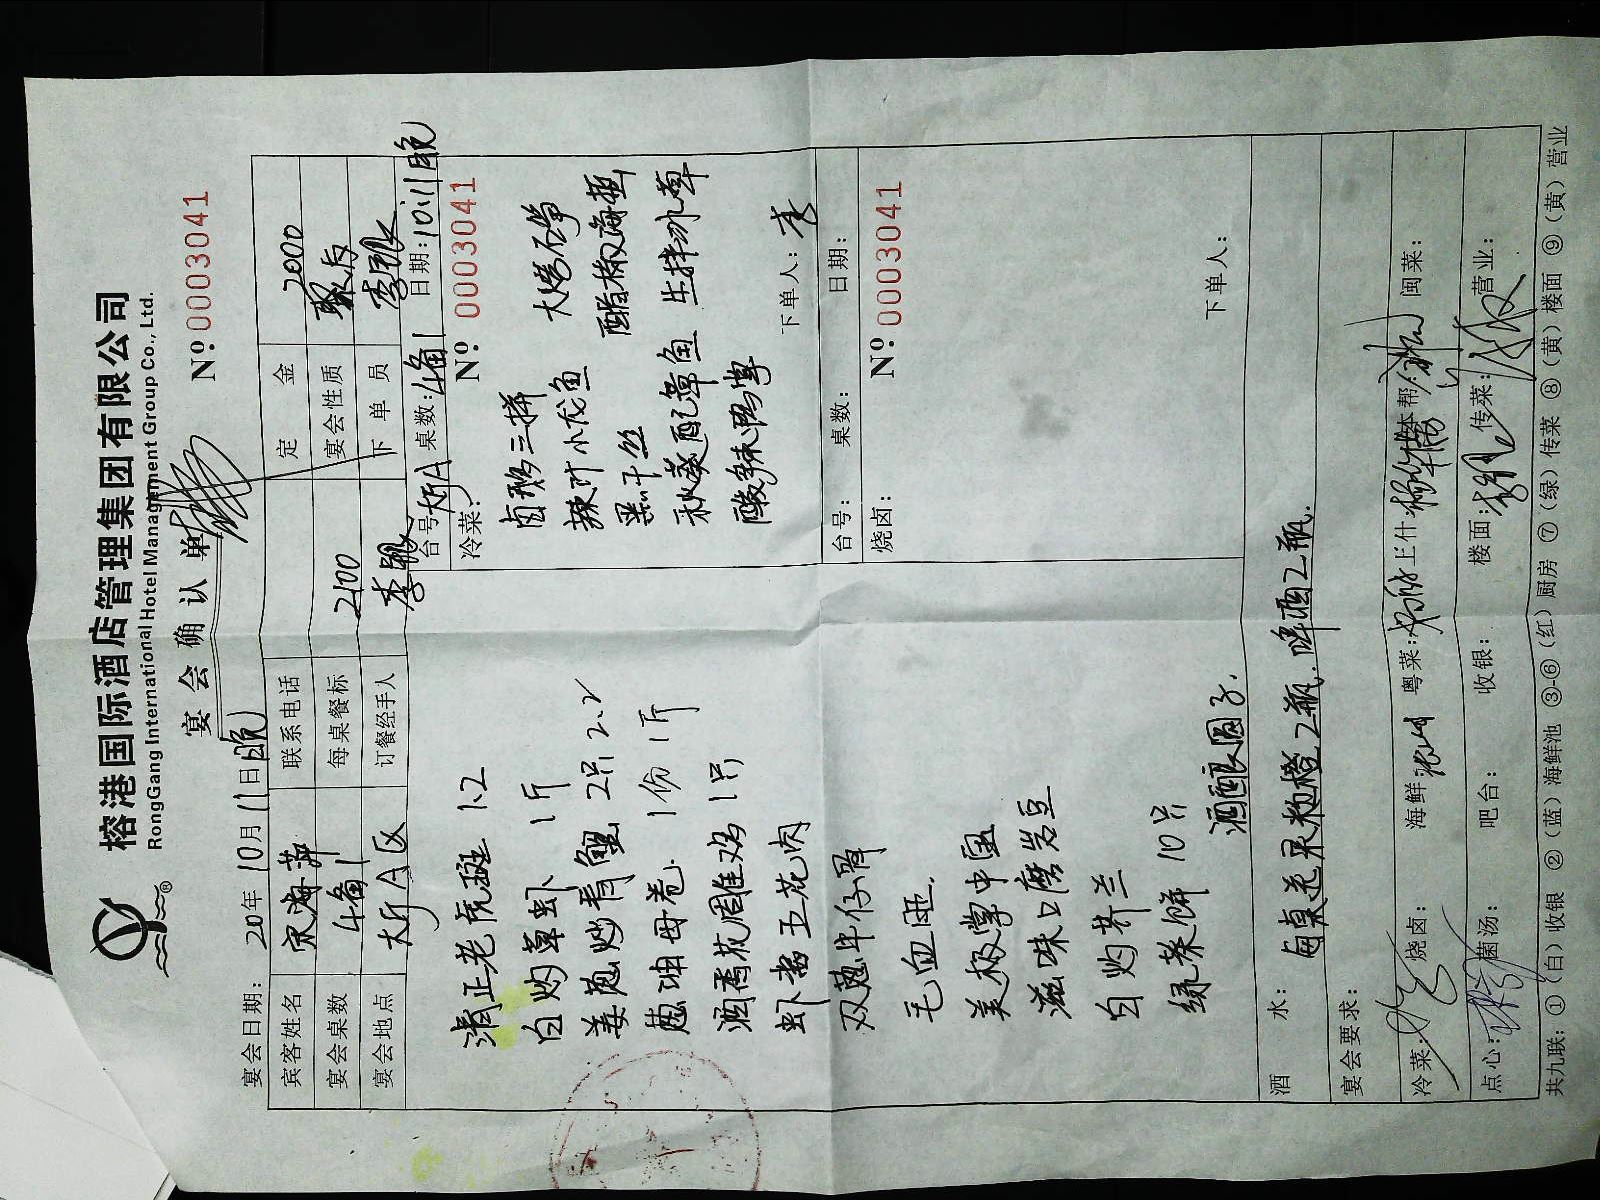 榕港国际酒店管理集团有限公司
RongGang International Hotel Management Group Co., Ltd.
宴会确认单
Nº 0003041
宴会日期: 20 年 10月 11日晚
宾客姓名 宋海萍 联系电话 定金 2000
宴会桌数 4备1 每桌餐标 2100 宴会性质 聚友
宴会地点 大厅A区 订餐经手人 李 下单员 李
清正老虎斑 1.2
白灼草虾 1斤
姜葱炒青蟹 2只 2.2
葱油母卷. 1份 1斤
酒香花雕鸡 1只
虾酱五花肉
双葱牛仔骨
毛血旺.
美极掌中宝
滋味口磨岩豆
白灼芥兰
绿茶饼 10片
酒酿圆子.
台号: 大厅A 桌数: 4备1 日期: 10.11晚
冷菜: Nº 0003041
卤鹅三拼 大烤石笋
辣汁小龙鱼 醋椒海蜇
黑干丝
秋葵配章鱼 生拌冰草
酸辣鸭掌
下单人: 李
台号: 桌数: 日期:
烧卤: Nº 0003041
下单人:
酒水: 每桌送果粒橙2瓶. 啤酒2瓶.
宴会要求:
冷菜: 烧卤: 海鲜 粤菜: 上什: 本帮: 闽菜:
点心: 菌汤: 吧台: 收银: 楼面: 传菜: 营业:
共九联: ①(白)收银 ②(蓝)海鲜池 ③-⑥(红)厨房 ⑦(绿)传菜 ⑧(黄)楼面 ⑨(黄)营业